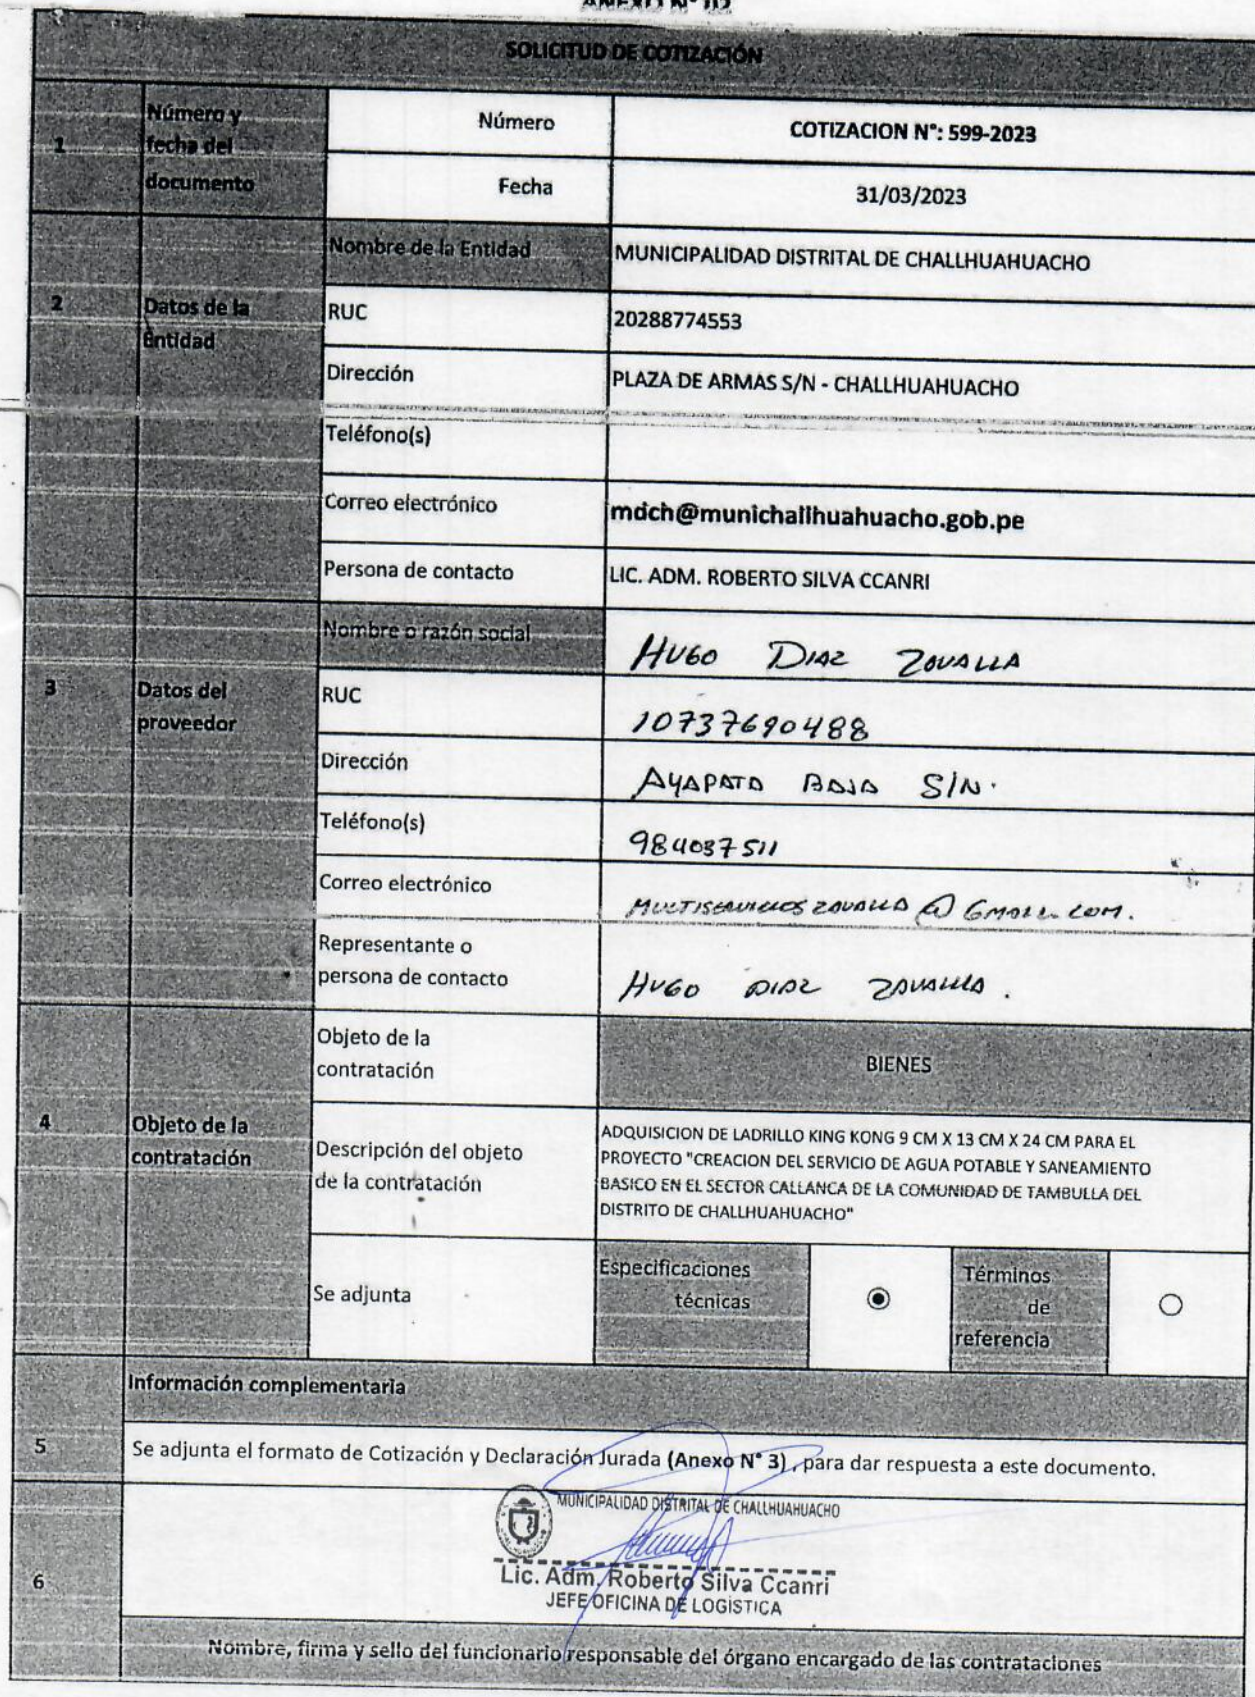 ANEXO N° 02
SOLICITUD DE COTIZACIÓN
1
Número y
fecha del
documento
Número
COTIZACION N°: 599-2023
Fecha
31/03/2023
2
Datos de la
Entidad
Nombre de la Entidad
MUNICIPALIDAD DISTRITAL DE CHALLHUAHUACHO
RUC
20288774553
Dirección
PLAZA DE ARMAS S/N - CHALLHUAHUACHO
Teléfono(s)
Correo electrónico
mdch@munichallhuahuacho.gob.pe
Persona de contacto
LIC. ADM. ROBERTO SILVA CCANRI
3
Datos del
proveedor
Nombre o razón social
HUGO DIAZ ZAVALLA
RUC
10737690488
Dirección
AYAPATA BAJA S/N.
Teléfono(s)
984037511
Correo electrónico
MULTISERVICIOSZAVALLA@GMAIL.COM.
Representante o
persona de contacto
HUGO DIAZ ZAVALLA.
4
Objeto de la
contratación
Objeto de la
contratación
BIENES
Descripción del objeto
de la contratación
ADQUISICION DE LADRILLO KING KONG 9 CM X 13 CM X 24 CM PARA EL
PROYECTO "CREACION DEL SERVICIO DE AGUA POTABLE Y SANEAMIENTO
BASICO EN EL SECTOR CALLANCA DE LA COMUNIDAD DE TAMBULLA DEL
DISTRITO DE CHALLHUAHUACHO"
Se adjunta
Especificaciones
técnicas
Términos
de
referencia
5
Información complementaria
Se adjunta el formato de Cotización y Declaración Jurada (Anexo N° 3) , para dar respuesta a este documento.
6
MUNICIPALIDAD DISTRITAL DE CHALLHUAHUACHO
Lic. Adm. Roberto Silva Ccanri
JEFE OFICINA DE LOGÍSTICA
Nombre, firma y sello del funcionario responsable del órgano encargado de las contrataciones